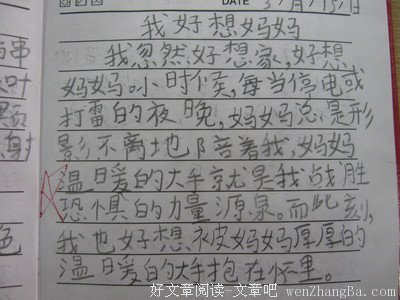 DATE 3/月/15/日
我好想妈妈
我忽然好想家,好想
妈妈。小时候,每当停电或
打雷的夜晚,妈妈总是形
影不离地陪着我,妈妈
温暖的大手就是我战胜
恐惧的力量源泉。而此刻,
我也好想被妈妈厚厚的
温暖的大手抱在怀里。
串
叶
题
射
色
好文章阅读-文章吧 wenZhangBa.com